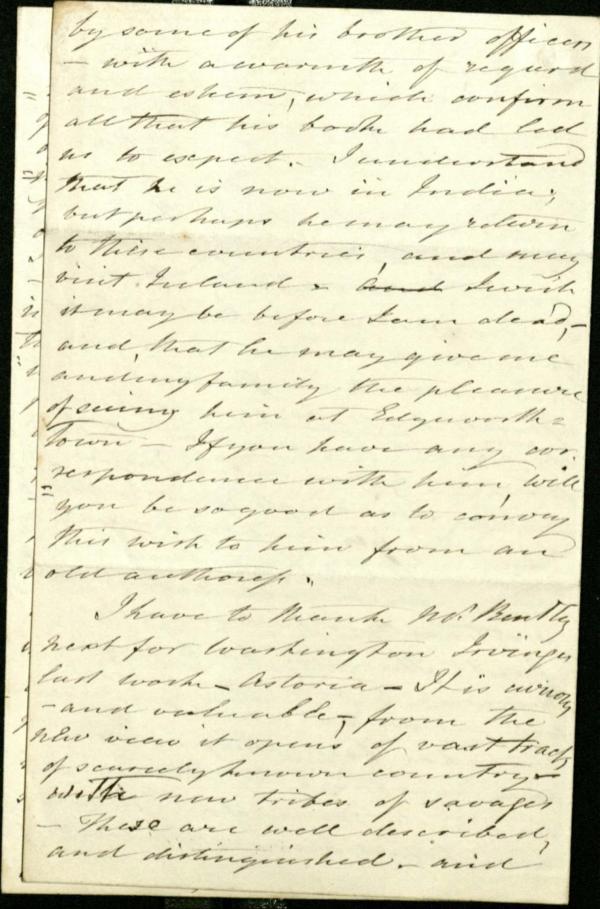 by some of his brother officers
– with a warmth of regard
and esteem, which confirm
all that his book had led
us to expect. I understand
that he is now in India;
but perhaps he may return
to these countries, and may
visit Ireland – and I wish
it may be before I am dead, –
and, that he may give me
and my family the pleasure
of seeing him at Edgeworth=
Town – If you have any cor-
respondence with him, will
you be so good as to convey
this wish to him from an
old authoress.
I have to thank Mr. Bentley
next for Washington Irvings
last work – Astoria – It is curious
– and valuable –, from the
new view it opens of vast tracts
of scarcely known country –
with new tribes of savages
– These are well described,
and distinguished – and